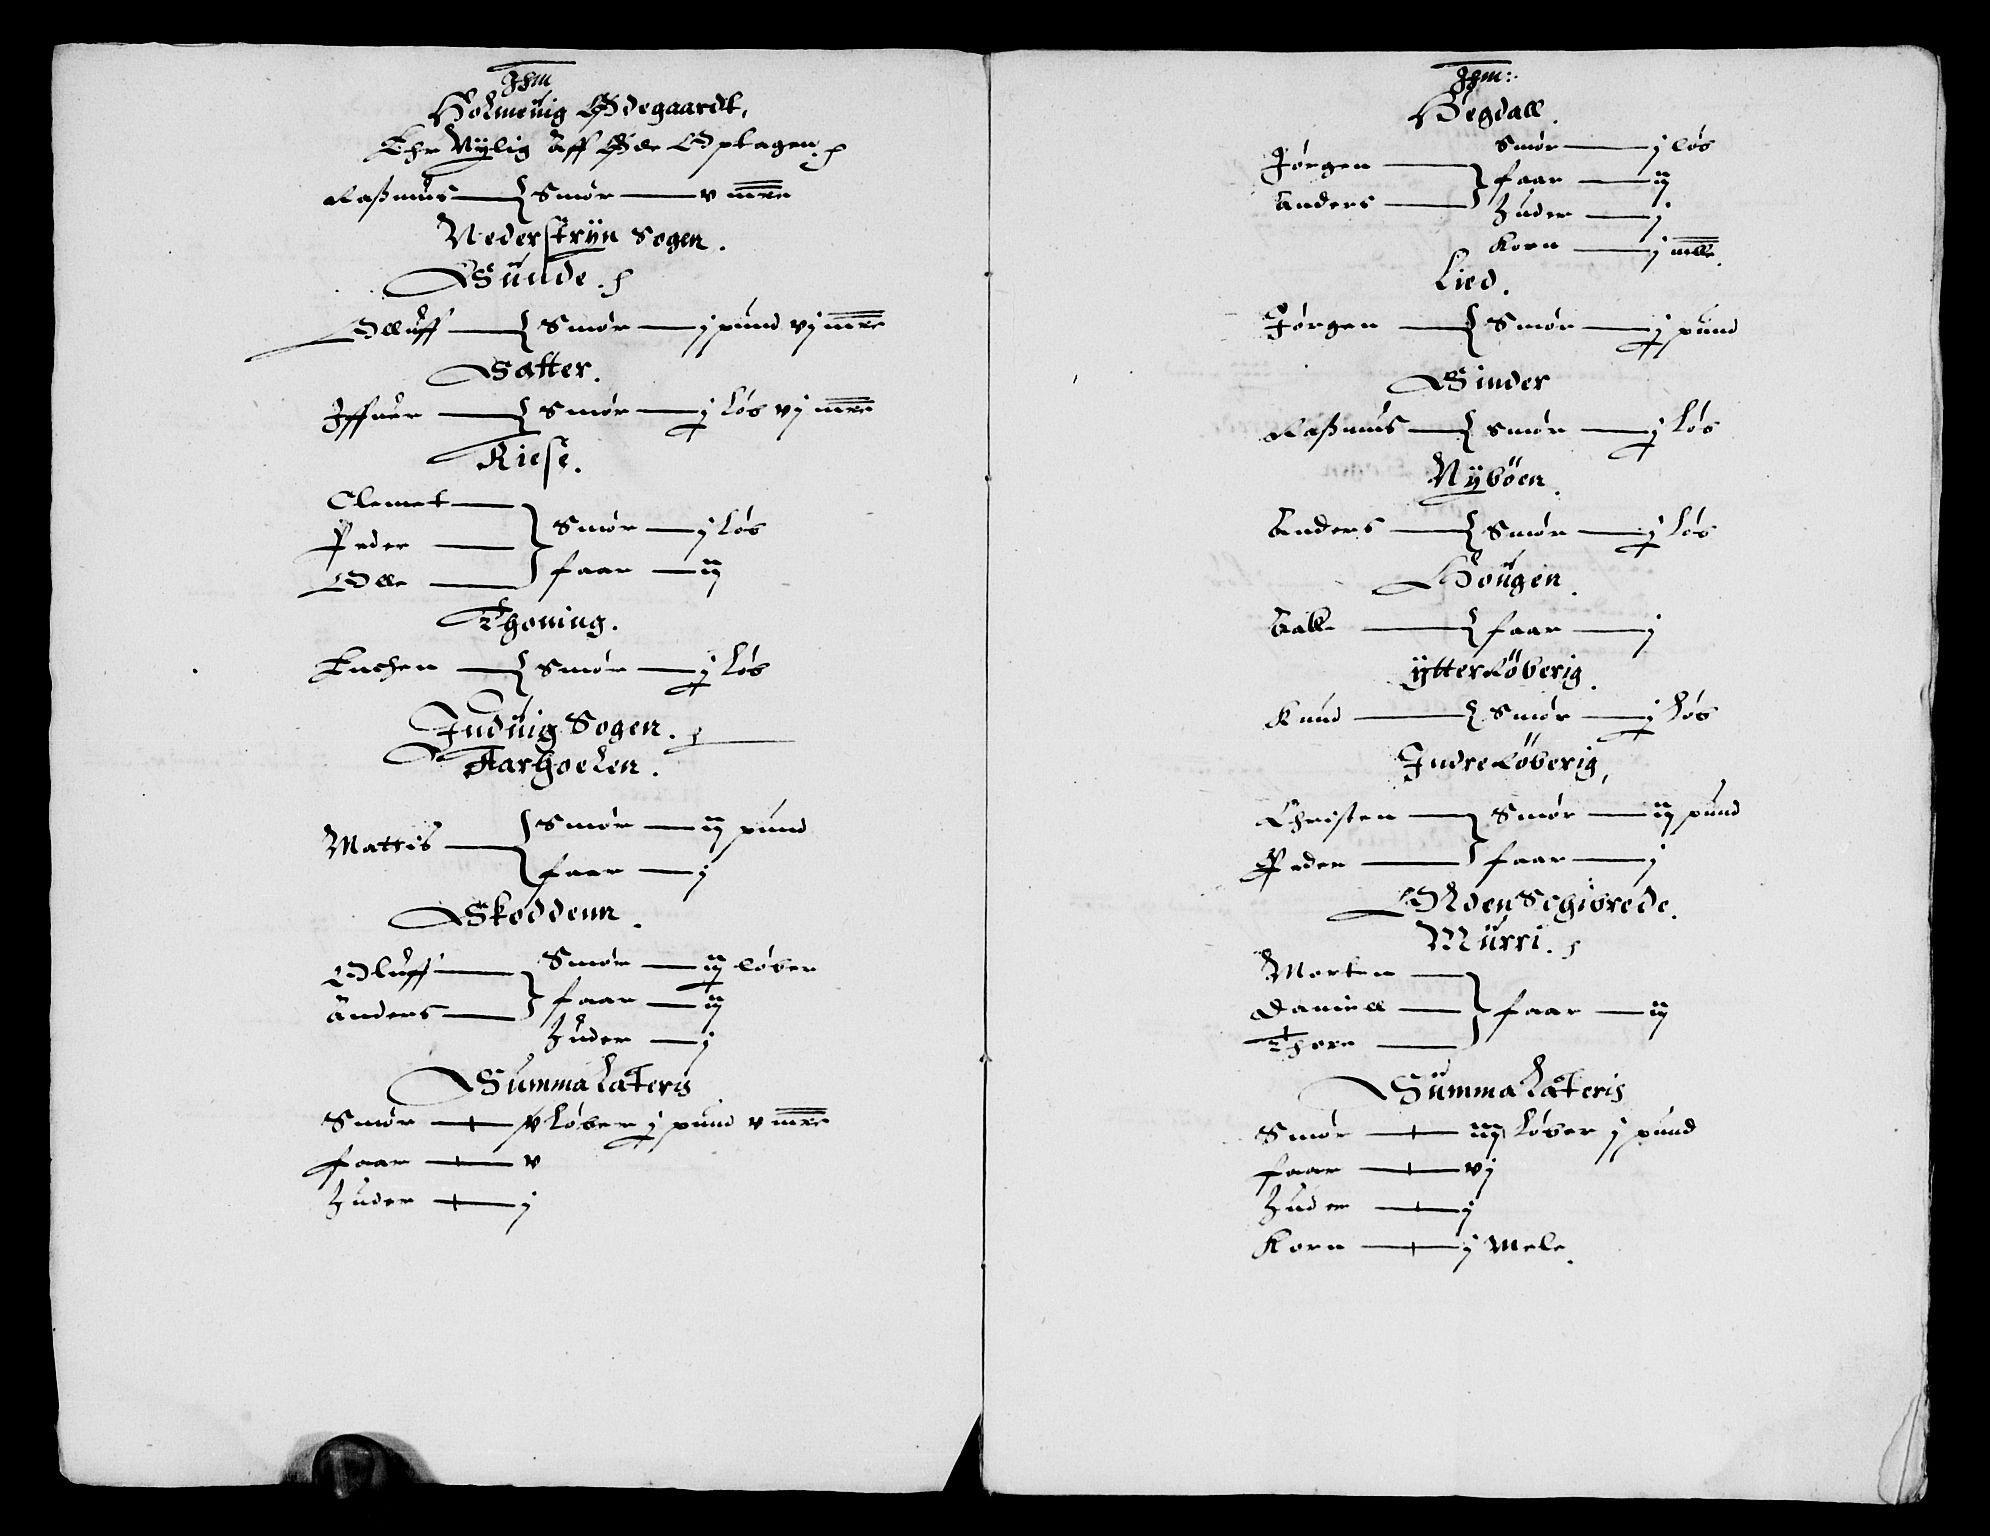 Jhm
Holmeuig Ødegaardt,
Ehr Nylig Aff Øde Optagen
Raßmus — Smør — v mrc
Nederstryn Sogen.
Sunde.
Olluff — Smør — j pund vj mrc
Satter.
Iffuer — Smør — j løb vj mrc
Riese.
Clemet —
Peder — Smør — j løb
Olle — faar — ij
Thoning.
Enchen — Smør — j løb
Induig Sogen.
Aarhoelen.
Mattis — Smør — ij pund
faar — j
Skoddenn.
Oluff — Smør — ij løber
Anders — faar — ij
Huder — j
Summa Lateris
Smør — v løber j pund v mrc
faar — v
Huder — j
Jhm:
Hegdall.
Jørgen — Smør — j løb
Anders — faar — ij
Huder — j
Korn — j mlle
Lied.
Jørgen — Smør — j pund
Sinder
Raßmus — Smør — j løb
Nybøen.
Anders — Smør — j løb
Hougen.
Balle — faar — j
ytter Løberig.
Knud — Smør — j løb
Indre Løberig,
Christen — Smør — ij pund
Peder — faar — j
Olden Schibrede.
Murri.
Morten —
Daniell — faar — ij
Thore —
Summa Lateris
Smør — iij løber j pund
faar — vj
Huder — j
Korn — j Mele.